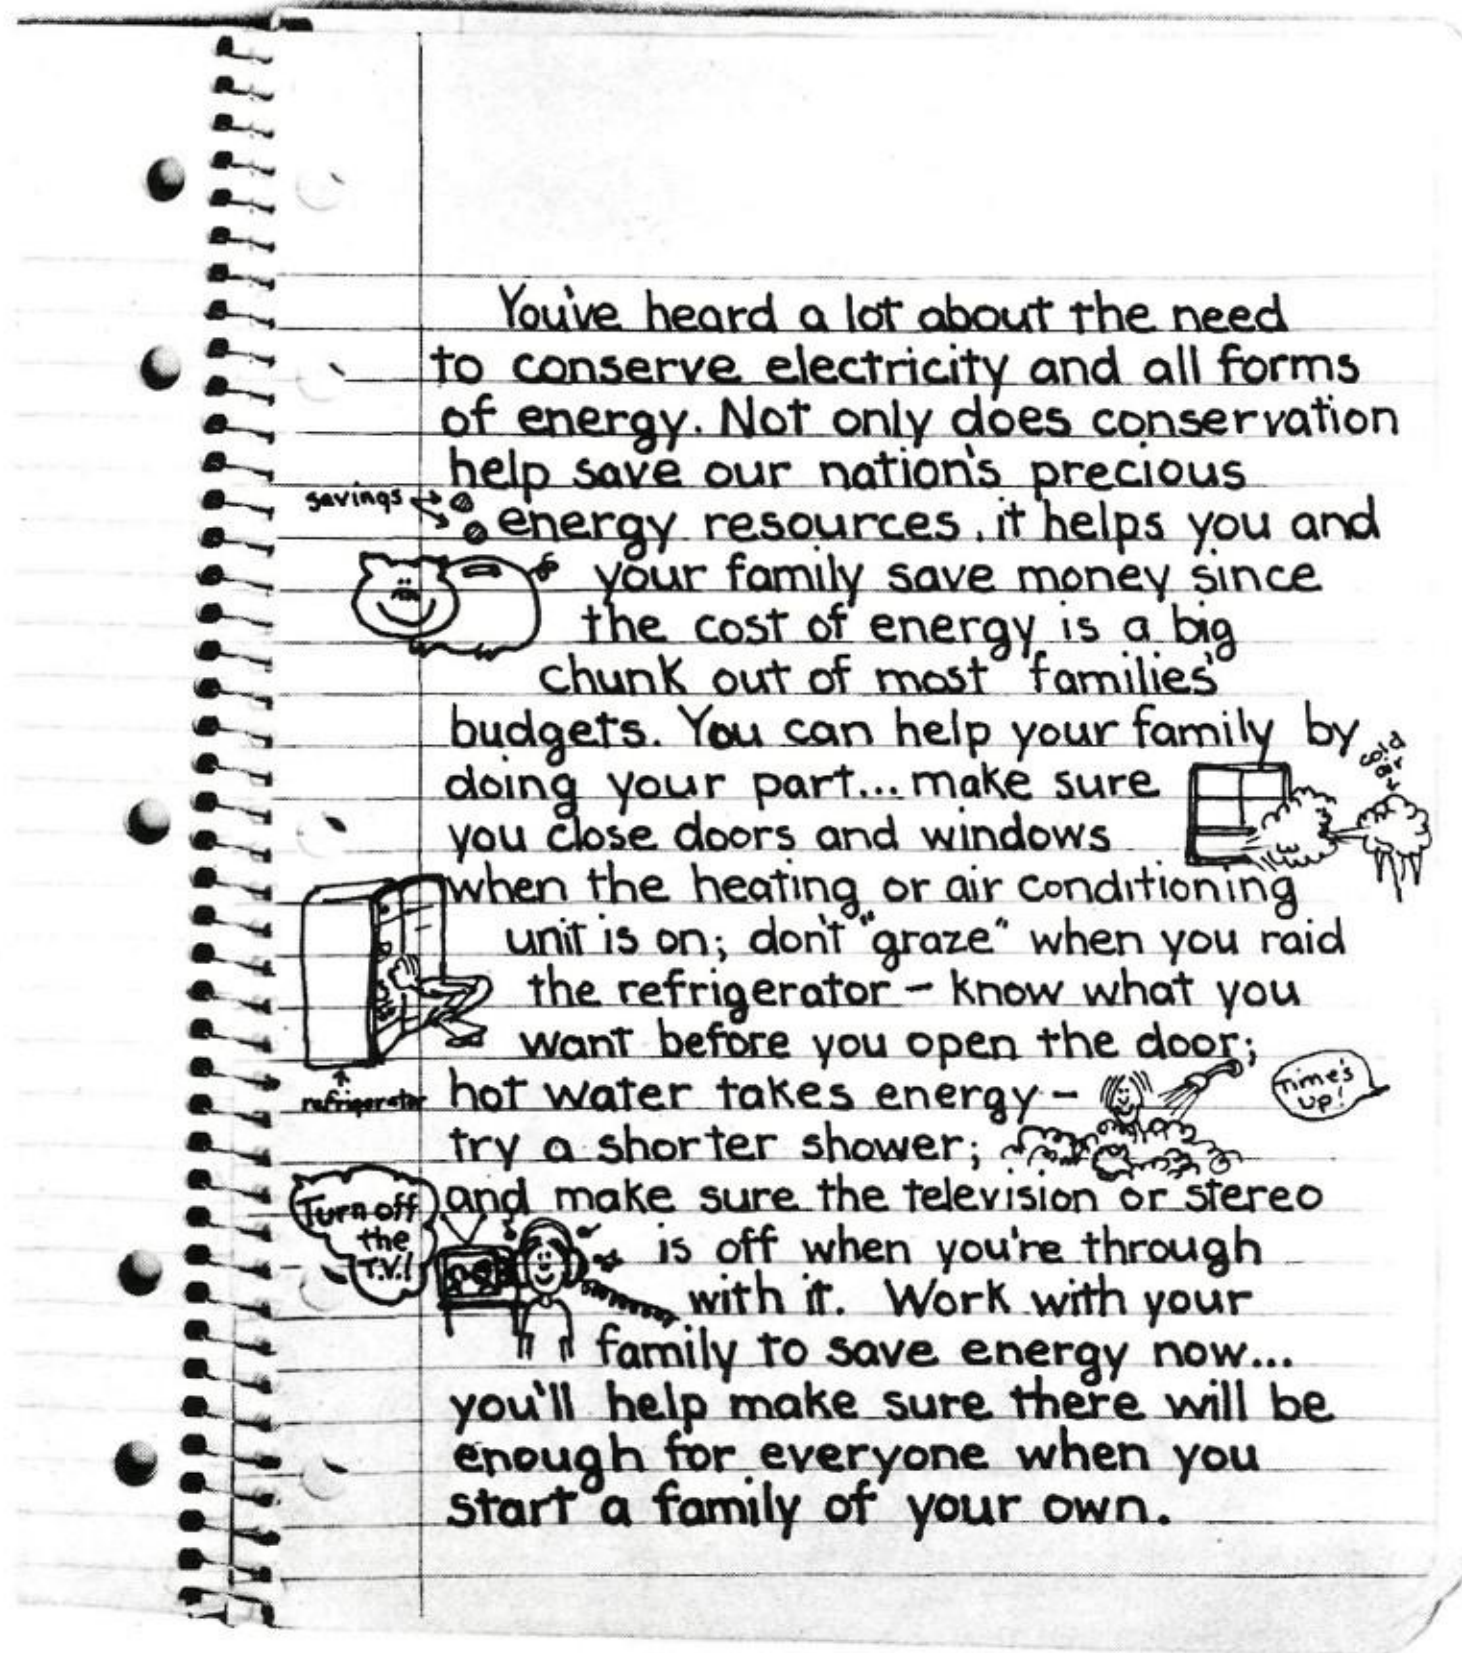 You've heard a lot about the need
to conserve electricity and all forms
of energy. Not only does conservation
help save our nation's precious
savings
energy resources, it helps you and
your family save money since
the cost of energy is a big
chunk out of most families'
budgets. You can help your family by
cold
air
doing your part... make sure
you close doors and windows
when the heating or air conditioning
unit is on; don't "graze" when you raid
the refrigerator - know what you
want before you open the door;
refrigerator
hot water takes energy -
Time's
up!
try a shorter shower;
and make sure the television or stereo
Turn off
the
T.V.!
is off when you're through
with it. Work with your
family to save energy now...
you'll help make sure there will be
enough for everyone when you
start a family of your own.